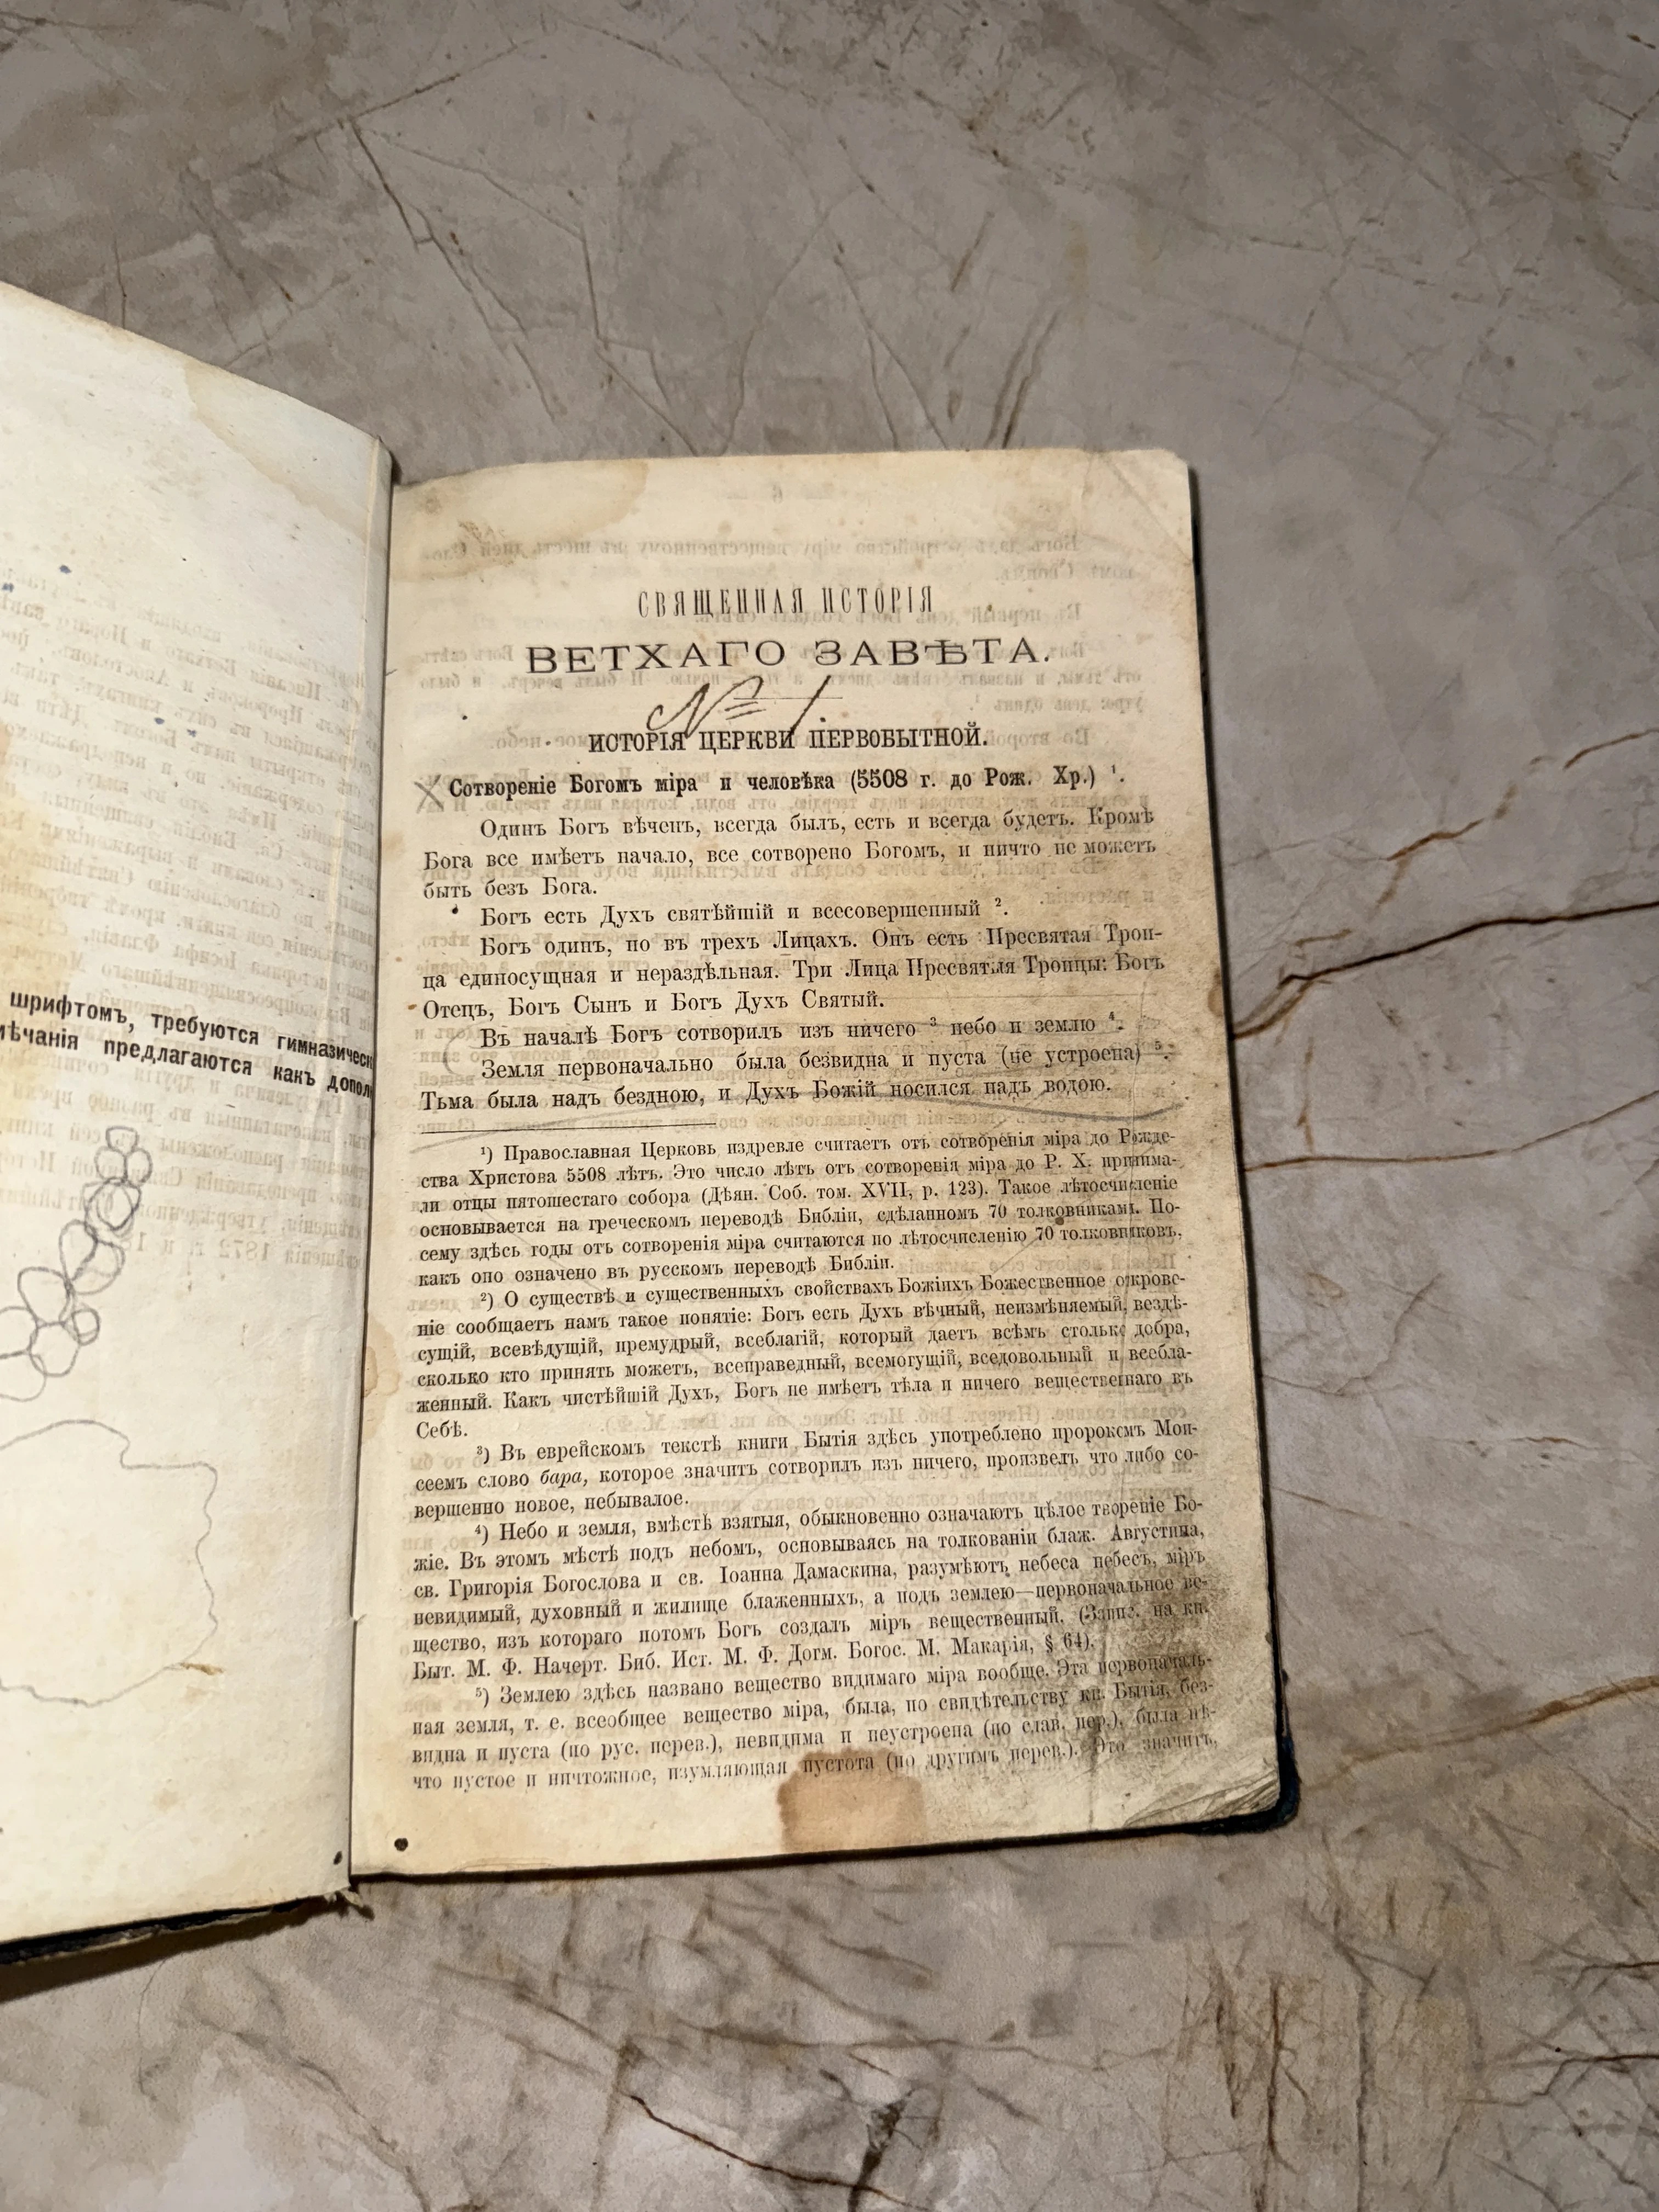 шрифтомъ, требуются гимназическ
мѣчанія предлагаются какъ допол
СВЯЩЕННАЯ ИСТОРІЯ
ВЕТХАГО ЗАВѢТА.
№ 1.
ИСТОРІЯ ЦЕРКВИ ПЕРВОБЫТНОЙ.
Сотвореніе Богомъ міра и человѣка (5508 г. до Рож. Хр.) ¹.
Одинъ Богъ вѣченъ, всегда былъ, есть и всегда будетъ. Кромѣ
Бога все имѣетъ начало, все сотворено Богомъ, и ничто не можетъ
быть безъ Бога.
Богъ есть Духъ святѣйшій и всесовершенный ².
Богъ одинъ, но въ трехъ Лицахъ. Онъ есть Пресвятая Трои-
ца единосущная и нераздѣльная. Три Лица Пресвятыя Троицы: Богъ
Отецъ, Богъ Сынъ и Богъ Духъ Святый.
Въ началѣ Богъ сотворилъ изъ ничего ³ небо и землю ⁴.
Земля первоначально была безвидна и пуста (не устроена) ⁵.
Тьма была надъ бездною, и Духъ Божій носился надъ водою.
¹) Православная Церковь издревле считаетъ отъ сотворенія міра до Рожде-
ства Христова 5508 лѣтъ. Это число лѣтъ отъ сотворенія міра до Р. Х. принима-
ли отцы пятошестаго собора (Дѣян. Соб. том. XVII, р. 123). Такое лѣтосчисленіе
основывается на греческомъ переводѣ Библіи, сдѣланномъ 70 толковниками. По-
сему здѣсь годы отъ сотворенія міра считаются по лѣтосчисленію 70 толковниковъ,
какъ оно означено въ русскомъ переводѣ Библіи.
²) О существѣ и существенныхъ свойствахъ Божіихъ Божественное откровс-
ніе сообщаетъ намъ такое понятіе: Богъ есть Духъ вѣчный, неизмѣняемый, вездѣ-
сущій, всевѣдущій, премудрый, всеблагій, который даетъ всѣмъ столько добра,
сколько кто принять можетъ, всеправедный, всемогущій, вседовольный и всебла-
женный. Какъ чистѣйшій Духъ, Богъ не имѣетъ тѣла и ничего вещественнаго въ
Себѣ.
³) Въ еврейскомъ текстѣ книги Бытія здѣсь употреблено пророкомъ Мои-
сеемъ слово бара, которое значитъ сотворилъ изъ ничего, произвелъ что либо со-
вершенно новое, небывалое.
⁴) Небо и земля, вмѣстѣ взятыя, обыкновенно означаютъ цѣлое твореніе Бо-
жіе. Въ этомъ мѣстѣ подъ небомъ, основываясь на толкованіи блаж. Августина,
св. Григорія Богослова и св. Іоанна Дамаскина, разумѣютъ небеса небесъ, міръ
невидимый, духовный и жилище блаженныхъ, а подъ землею—первоначальное ве-
щество, изъ котораго потомъ Богъ создалъ міръ вещественный. (Запис. на кн.
Быт. М. Ф. Начерт. Биб. Ист. М. Ф. Догм. Богос. М. Макарія, § 64).
⁵) Землею здѣсь названо вещество видимаго міра вообще. Эта первоначаль-
ная земля, т. е. всеобщее вещество міра, была, по свидѣтельству кн. Бытія, без-
видна и пуста (по рус. перев.), невидима и неустроена (по слав. пер.), была нѣ-
что пустое и ничтожное, изумляющая пустота (по другимъ перев.). Это значитъ,